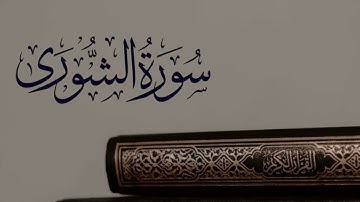 سُورَةُ الشُّورَى
القرآن الكريم